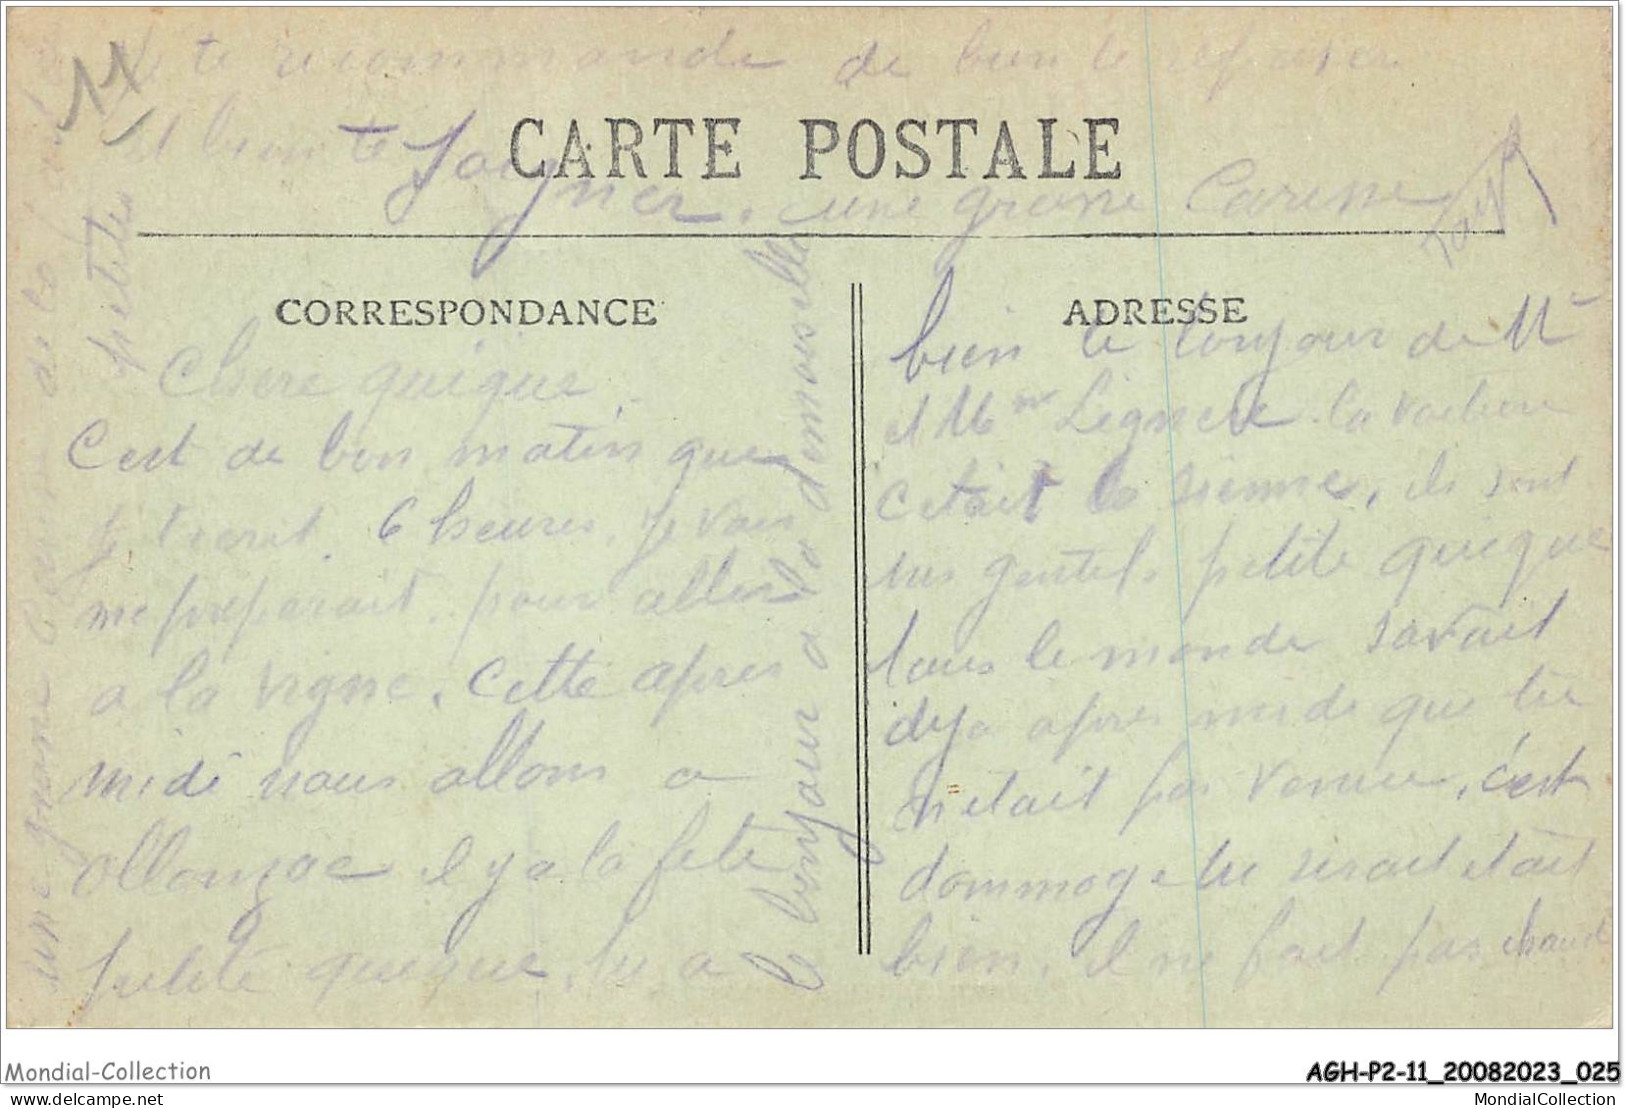 11
te recommande de bien te reposer
et bien te soigner. une grosse Caresse
CARTE POSTALE
CORRESPONDANCE
ADRESSE
Chere quique
C'est de bon matin que
je t'ecrit. 6 heures. je vais
me preparait. pour aller
a la vigne. Cette apres
midi nous allons a
Ollonzac il y a la fete
petite quique. tu a
le bonjour a la demoiselle
bien le bonjour de Mr
et Mme la voiture
c'etait la sienne, ils sont
gentils petite quique
tous le monde savait
deja apres midi que tu
n'etait pas venue, c'est
dommage tu serait etait
bien, il ne fait pas chaud
une grosse
petites
Mondial-Collection
AGH-P2-11_20082023_025
delcampe.net
MondialCollection